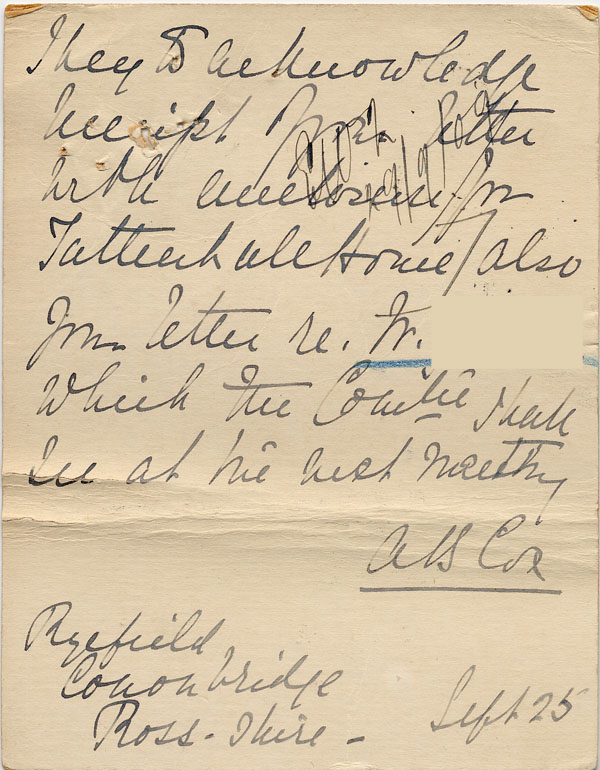 They to acknowledge
receipt from letter
with enclosure from
Tattenhall Home/also
from letter re. W.
which the Comtee shall
see at the next meeting
A B Cox
Ryefield
Cononbridge
Ross-shire –
Sept 25